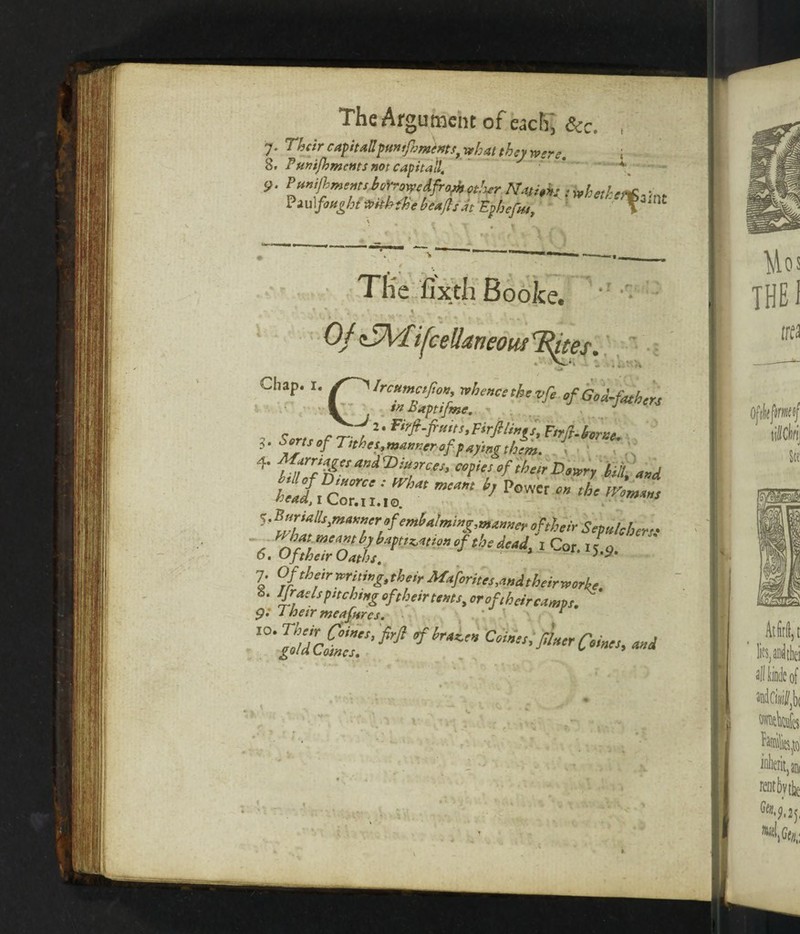 The Argument of each, &c.
7. Their capitall punishments, what they were.
8. Punishments not capitall.
9. Punishments borrowed from other Nations : whether Saint
Paul fought with the beasts at Ephesus,
The sixth Booke.
Of Miscellaneous Rites.
Chap. 1. CIrcumcision, whence the vse of God-fathers
in Baptisme.
2. First-fruits, Firstlings, First-borne.
3. Sorts of Tithes, manner of paying them.
4. Marriages and Diuorces, copies of their Dowry bill, and
bill of Diuorce : What meant by Power on the Womans
head, 1 Cor. 11.10.
5. Burialls, manner of embalming, manner of their Sepulchers:
What meant by baptization of the dead, 1 Cor. 15.9.
6. Of their Oaths.
7. Of their writing, their Masorites, and their worke.
8. Israels pitching of their tents, or of their camps.
9. Their measures.
10. Their Coines, first of brazen Coines, siluer Coines, and
gold Coines.
Mos
THE
trea
Of the forme of
till Chri
At first, t
lies, and thei
all kinde of
and Ciuill, be
Families, to
inherit, an
rent by the
Gen. 9. 25.